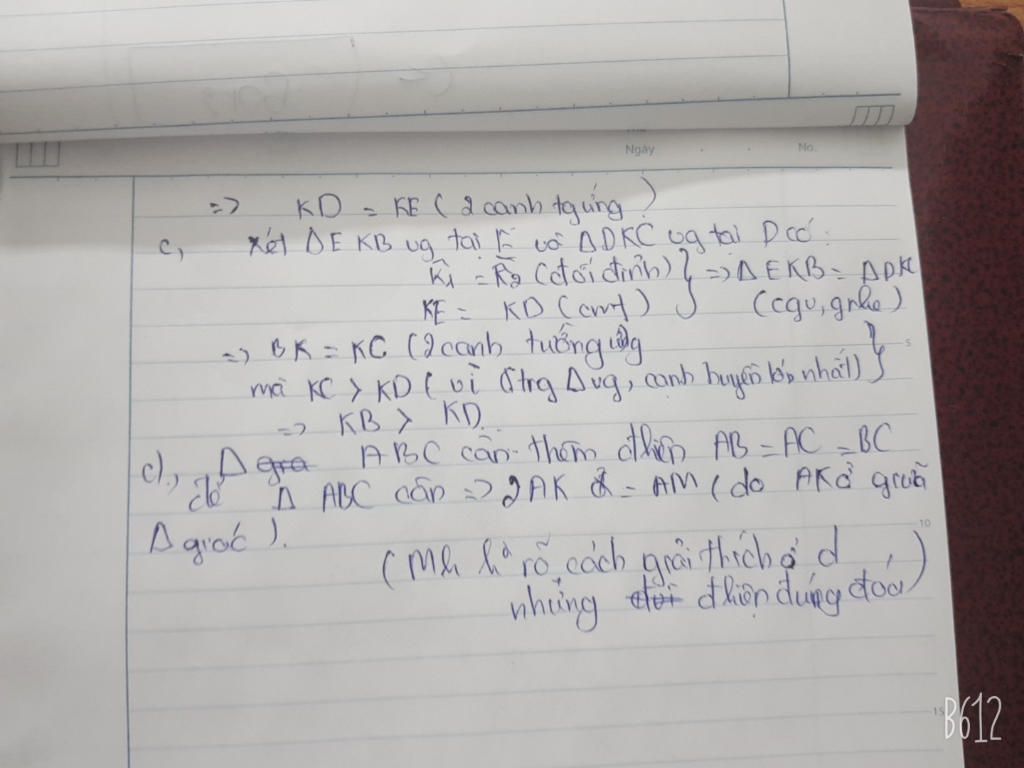 Ngày No.
=> KD = KE ( 2 cạnh tg ứng )
c, Xét ΔEKB vg tại E và ΔDKC vg tại D có:
K̂1 = K̂2 (đối đỉnh) } => ΔEKB = ΔDKC
KE = KD (cmt) } (cgv, gnhọn)
=> BK = KC (2 cạnh tương ứng
mà KC > KD ( vì trg Δvg, cạnh huyền lớn nhất) }
=> KB > KD.
d, Δ ABC cần thêm đkiện AB = AC = BC
để Δ ABC cân => 2AK = AM ( do AK ở giữa
Δ giác ).
( Mk k rõ cách giải thích ở d ,
nhưng đkiện đúng đoá )
5
10
15
B612